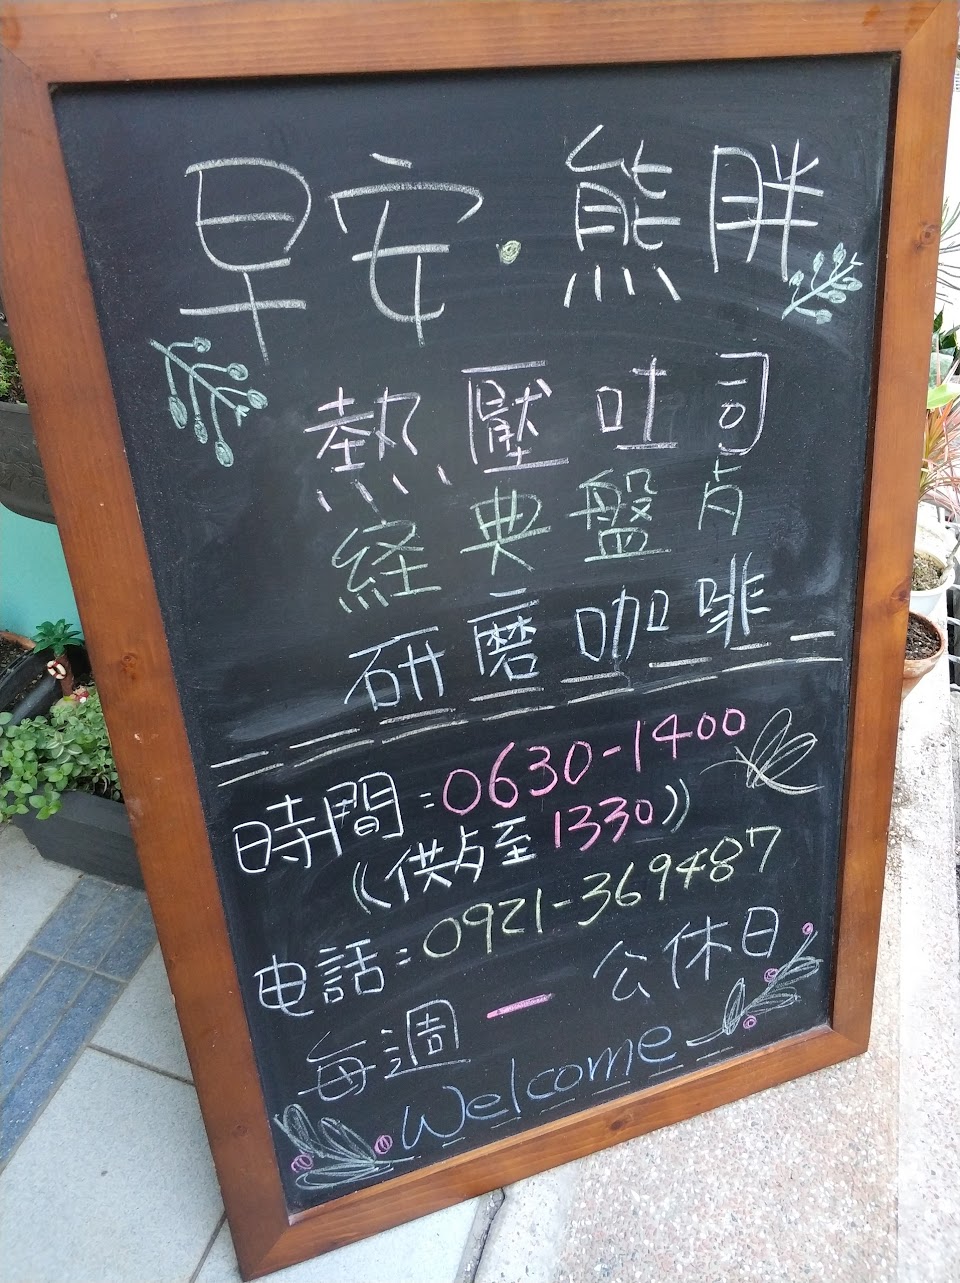 早安·熊胖
熱壓吐司
経典盤点
研磨咖啡
時間:0630-1400
(供点至1330)
电話:0921-369487
每週一公休日
Welcome